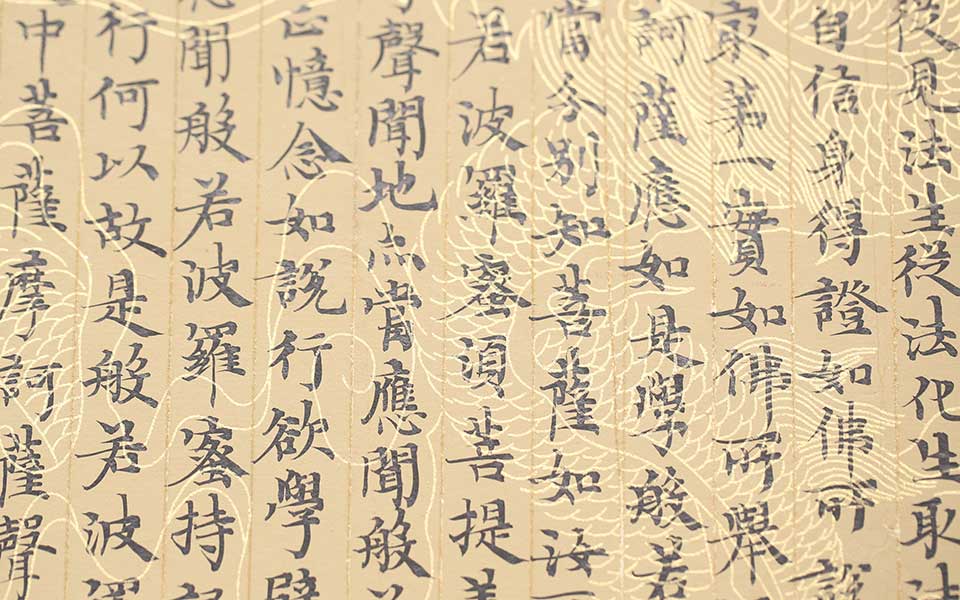 從見法生從法化生取法
自信身得證如佛所說
㝡第一實如佛所舉
訶薩應如是學般若
當分別知菩薩如汝
若波羅蜜須菩提
聲聞地亦當應聞般
正憶念如說行欲學辟
聞般若波羅蜜持
行何以故是般若波羅
中菩薩摩訶薩聲